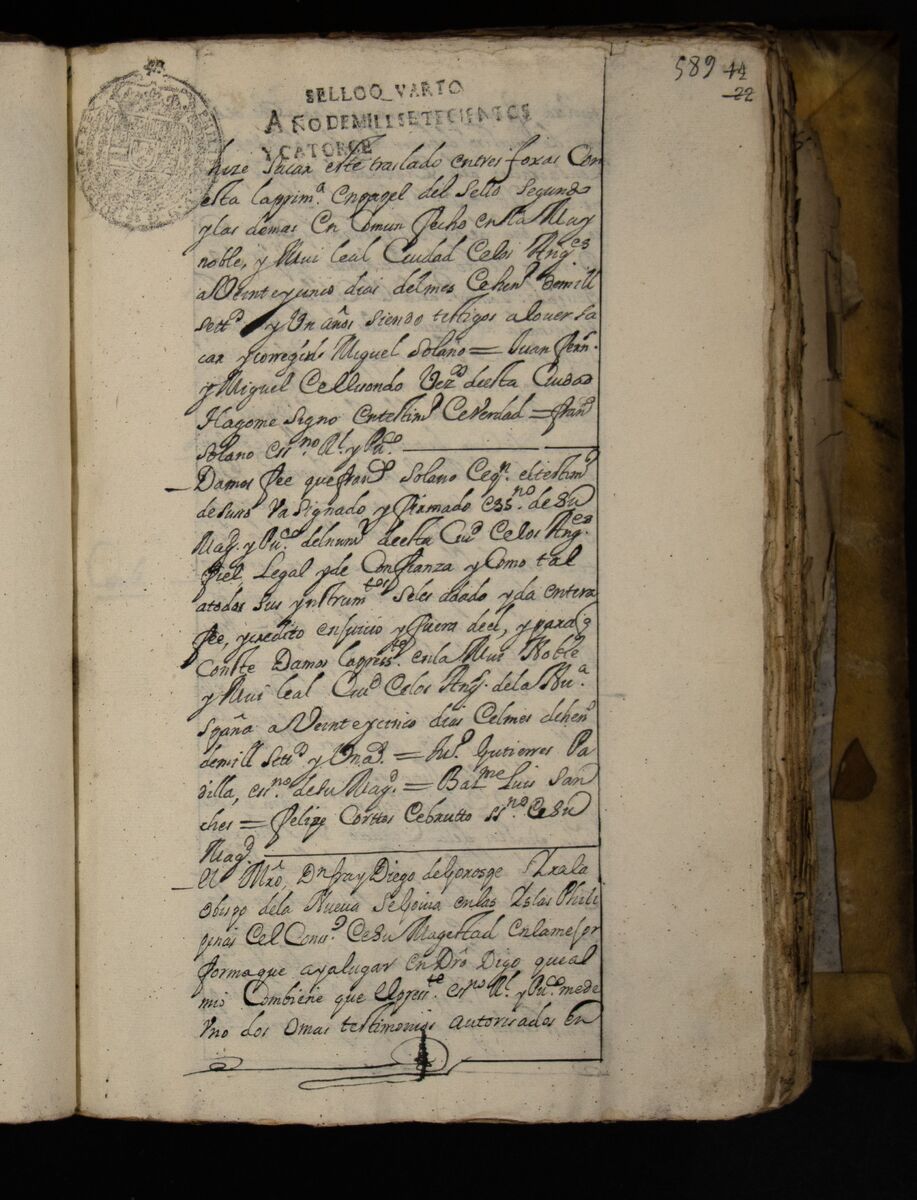 589 44
22
SELLO Q_VARTO
AÑO DE MIL L SETECIENTOS
Y CATORCE
hize sacar este traslado entres foxas Con
esta laprimª. Enpapel del Sello Segundo
y las demas En Comun fecho en la Muy
noble, y Mui leal Ciudad Celos Angˢ
a Veinte y cinco dias del mes Cehenº Demill
settº y Un años Siendo testigos alover sa
car y corregirlo Miguel Solano = Juan fernˢ.
y Miguel Ce Vezº deesta Ciudad
Hagome Signo entestimº CeVerdad = franº
Solano essⁿᵒ. Rˡ. y Puᶜᵒ.
Damos fee quefranº Solano Ceqⁿ. eltestimº
de suso Va Signado y firmado essⁿᵒ. de Su
Magᵈ. y Puᶜᵒ. delnumº deesta Ciuᵈ Celos Angᵉˢ
fiel, Legal yde Confianza y Como tal
atodos Sus ynstrumᵗᵒˢ Seles adado yda entera
fee, ycredito enjuicio y fuera del, y paraq̃
Conste Damos lapressᵗᵉ. en la Mui Noble
y Mui leal Ciuᵈ Celos Angˢ. de la Nuª.
España a Veinte y cinco dias Celmes dehenº
demill Settº y Un aº. = Juº. Gutierres Pa
dilla, essⁿᵒ. de Su Magᵈ. = Balᵐᵉ Luis San
ches = Felipe Corttes Cebrutto ssⁿᵒ. Ce Su
Magᵈ.
el Mr̃o, Dⁿ fray Diego deGorospe Yrala
Obispo dela Nueva Segovia en las Yslas Phili
pinas Cel Consº. Ce Su Magestad En la mejor
forma que aya lugar en Dr̃o Digo que al
mio Combiene que Elpressᵗᵉ. essⁿᵒ Rˡ. y Puᶜᵒ. mede
Vno dos Omas testimonios autorisados en